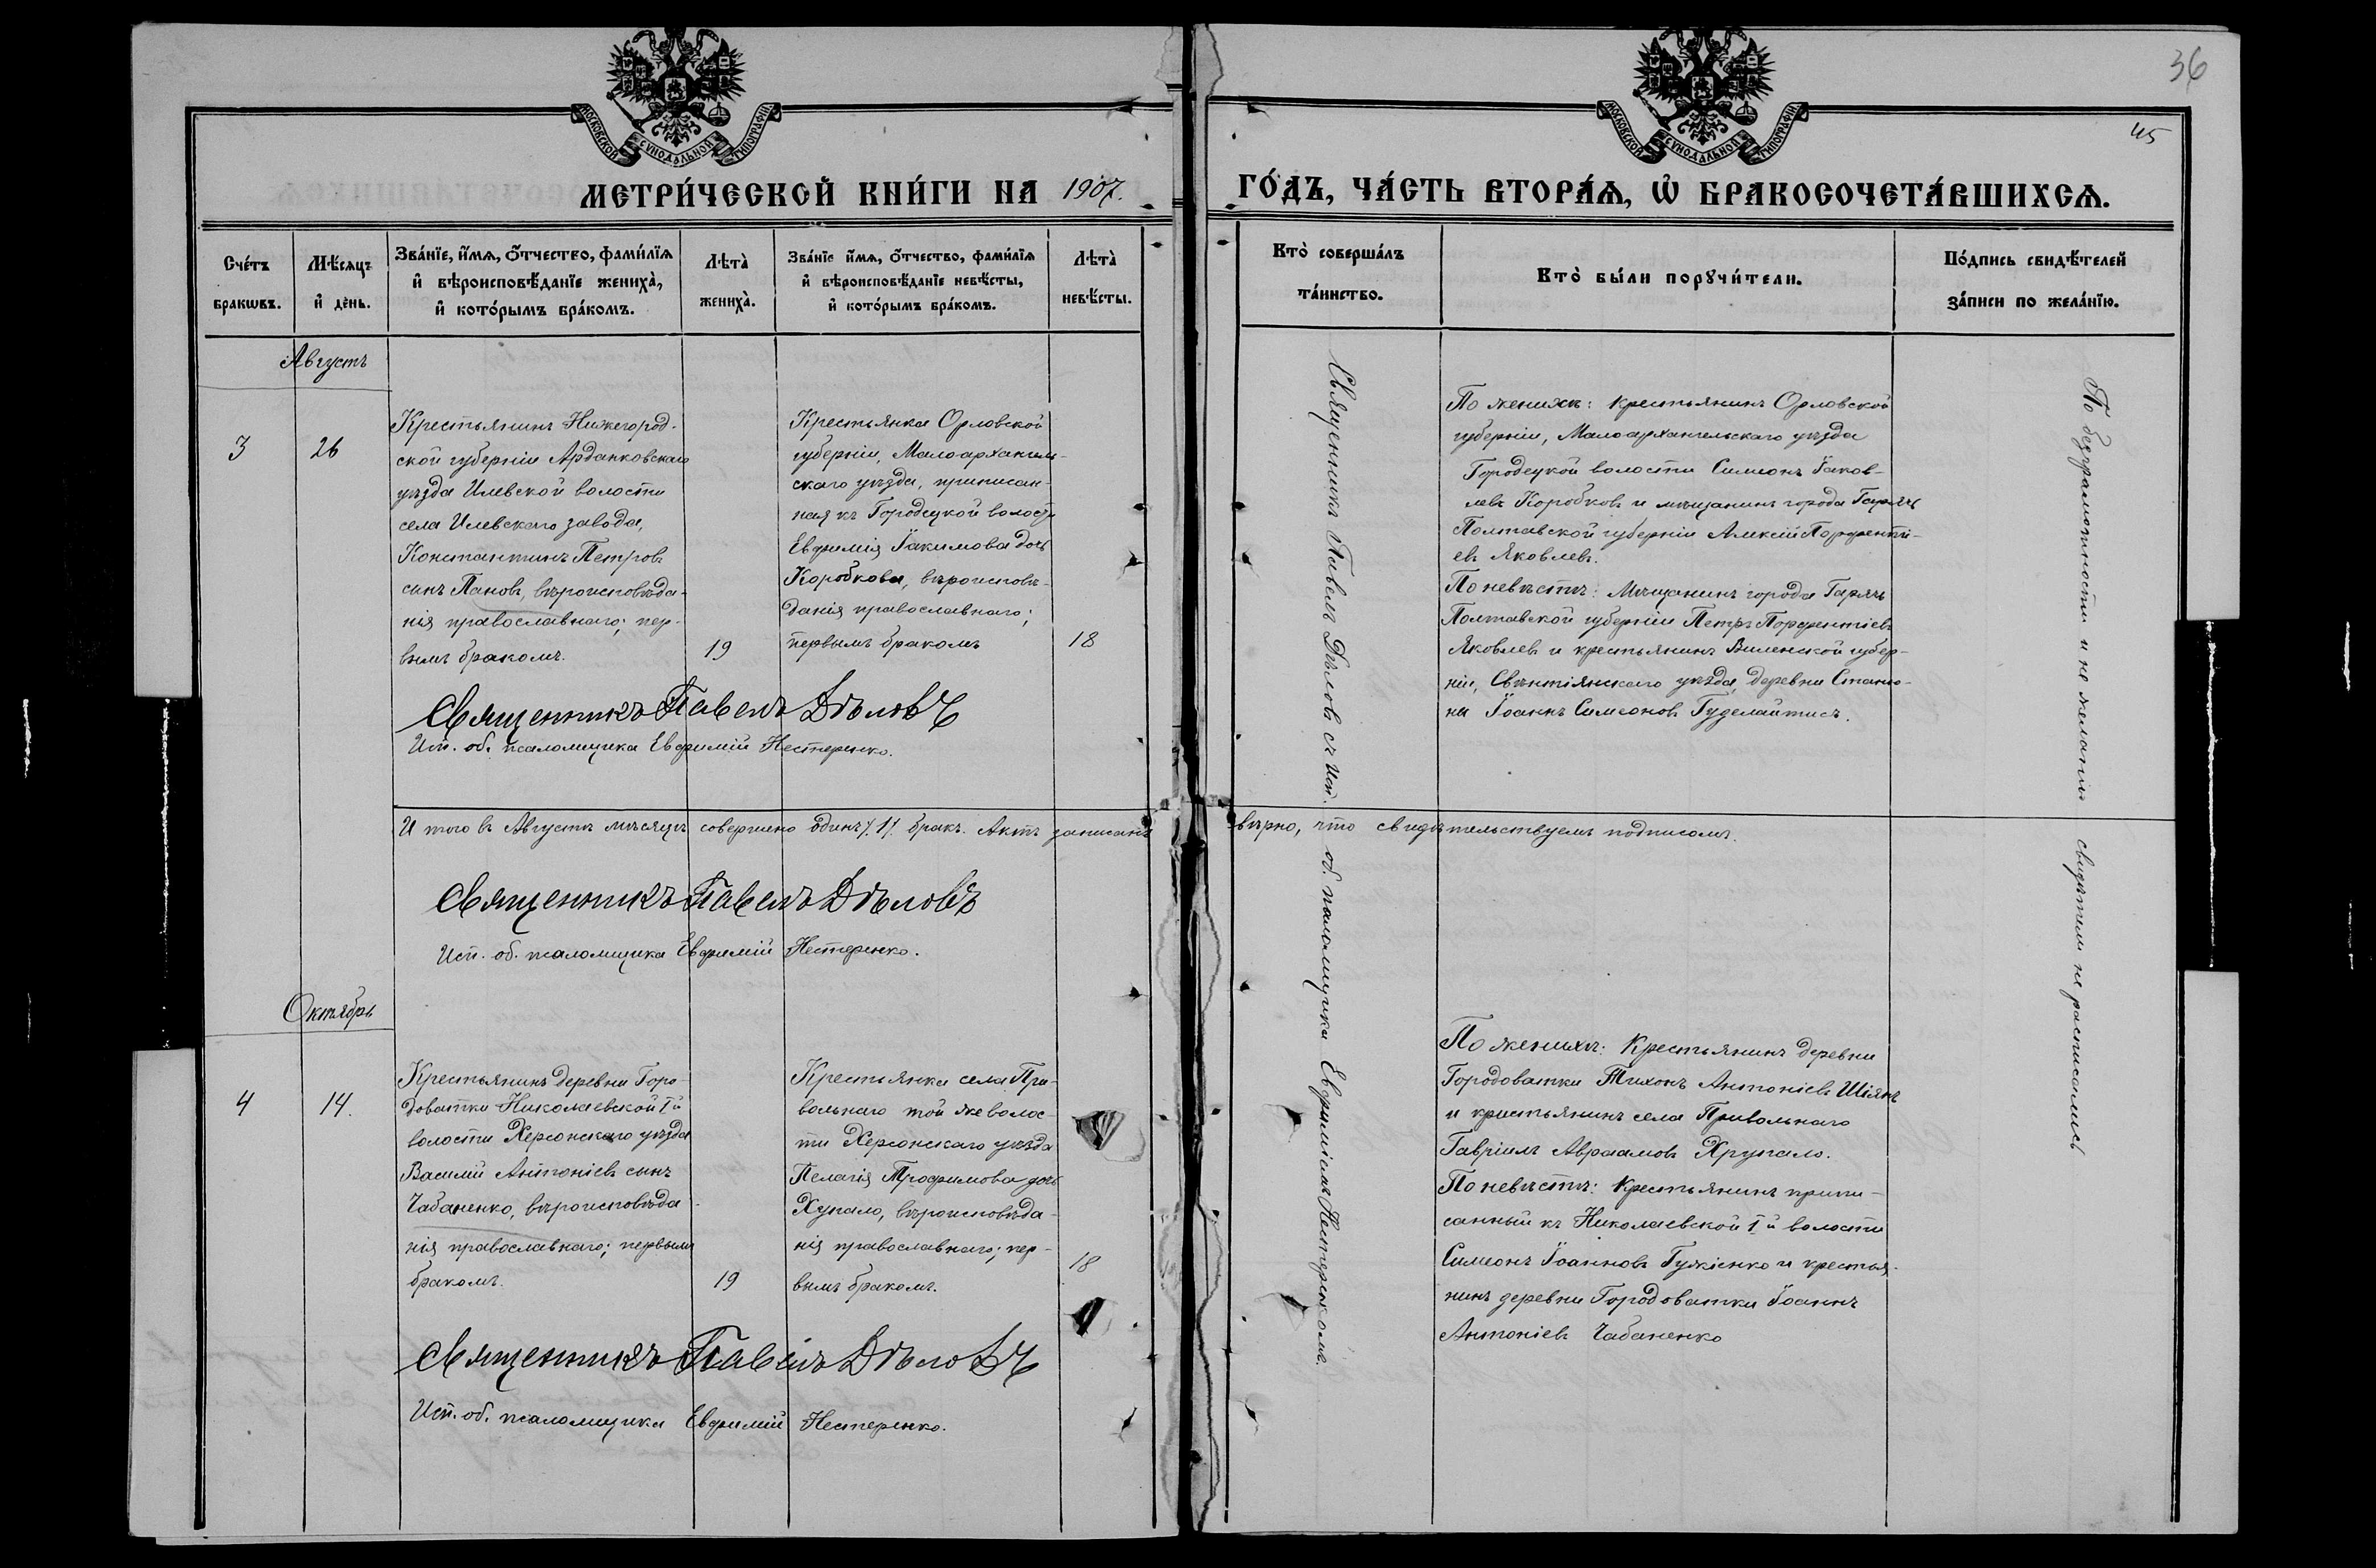 36
45
МОСКОВСКОЙ СѴНОДАЛЬНОЙ ТИПОГРАФІИ
МОСКОВСКОЙ СѴНОДАЛЬНОЙ ТИПОГРАФІИ
МЕТРИ́ЧЕСКОЙ КНИ́ГИ НА 1907.
ГО́ДЪ, ЧА́СТЬ ВТОРА́Ѧ, Ѡ҆ БРАКОСОЧЕТА́ВШИХСѦ.
Сче́тъ
бракѡвъ.
Мѣ́сяцъ
и҆ де́нь.
Зва́нїе, и҆́мѧ, ѻ҆́тчество, фами́лїѧ
и҆ вѣроисповѣ́данїе жениха̀,
и҆ кото́рымъ бра́комъ.
Лѣта̀
жениха̀.
Зва́нїе и҆́мѧ, ѻ҆́тчество, фами́лїѧ
и҆ вѣроисповѣ́данїе невѣ́сты,
и҆ кото́рымъ бра́комъ.
Лѣта̀
невѣ́сты.
Кто̀ соверша́лъ
та́инство.
Кто̀ бы́ли порꙋчи́тели.
По́дпись свидѣ́телей
за́писи по жела́нїю.
Августъ
3
26
Крестьянинъ Нижегород-
ской губерніи Арданковскаго
уѣзда Илевской волости
села Илевскаго завода,
Константинъ Петровъ
сынъ Пановъ, вѣроисповѣда-
нія православнаго; пер-
вымъ бракомъ.
19
Крестьянка Орловской
губерніи, Малоархангель-
скаго уѣзда, приписан-
ная къ Городецкой волости
Евфимія Іакимова дочь
Коробкова, вѣроисповѣ-
данія православнаго;
первымъ бракомъ
18
Священникъ Павелъ Дѣловъ
Исп. об. псаломщика Евфимій Нестеренко.
Священникъ Павелъ Дѣловъ съ исп. об. псаломщика Евфиміемъ Нестеренкомъ.
По женихѣ: крестьянинъ Орловской
губерніи, Малоархангельскаго уѣзда
Городецкой волости Симеонъ Іаков-
левъ Коробковъ и мѣщанинъ города
Полтавской губерніи Алексій Порфенті-
евъ Яковлевъ.
По невѣстѣ: Мѣщанинъ города
Полтавской губерніи Петръ Порфентіевъ
Яковлевъ и крестьянинъ Виленской губер-
ніи, Свѣнтянскаго уѣзда, деревни
Іоаннъ Симеоновъ Гуделайтисъ.
По безграмотности и не желанію свидѣтели не расписались
И того въ Августѣ мѣсяцѣ совершено одинъ /1/ бракъ. Актъ записанъ вѣрно, что свидѣтельствуемъ подписомъ.
Священникъ Павелъ Дѣловъ
Исп. об. псаломщика Евфимій Нестеренко.
Октябрь
4
14.
Крестьянинъ деревни Горо-
доватки Николаевской 1й
волости Херсонскаго уѣзда
Василій Антоніевъ сынъ
Чабаненко, вѣроисповѣда-
нія православнаго; первымъ
бракомъ.
19
Крестьянка села При-
вольнаго той же волос-
ти Херсонскаго уѣзда
Пелагія Трофимова дочь
Хупало, вѣроисповѣда-
нія православнаго; пер-
вымъ бракомъ.
18
По женихѣ: Крестьянинъ деревни
Городоватки Тихонъ Антоніевъ Шіянъ
и крестьянинъ села Привольнаго
Гавріилъ Авраамовъ Хрупало.
По невѣстѣ: Крестьянинъ припи-
санный къ Николаевской 1й волости
Симеонъ Іоанновъ Гужіенко и крестья-
нинъ деревни Городоватки Іоаннъ
Антоніевъ Чабаненко
Священникъ Павелъ Дѣловъ
Исп. об. псаломщика Евфимій Нестеренко.